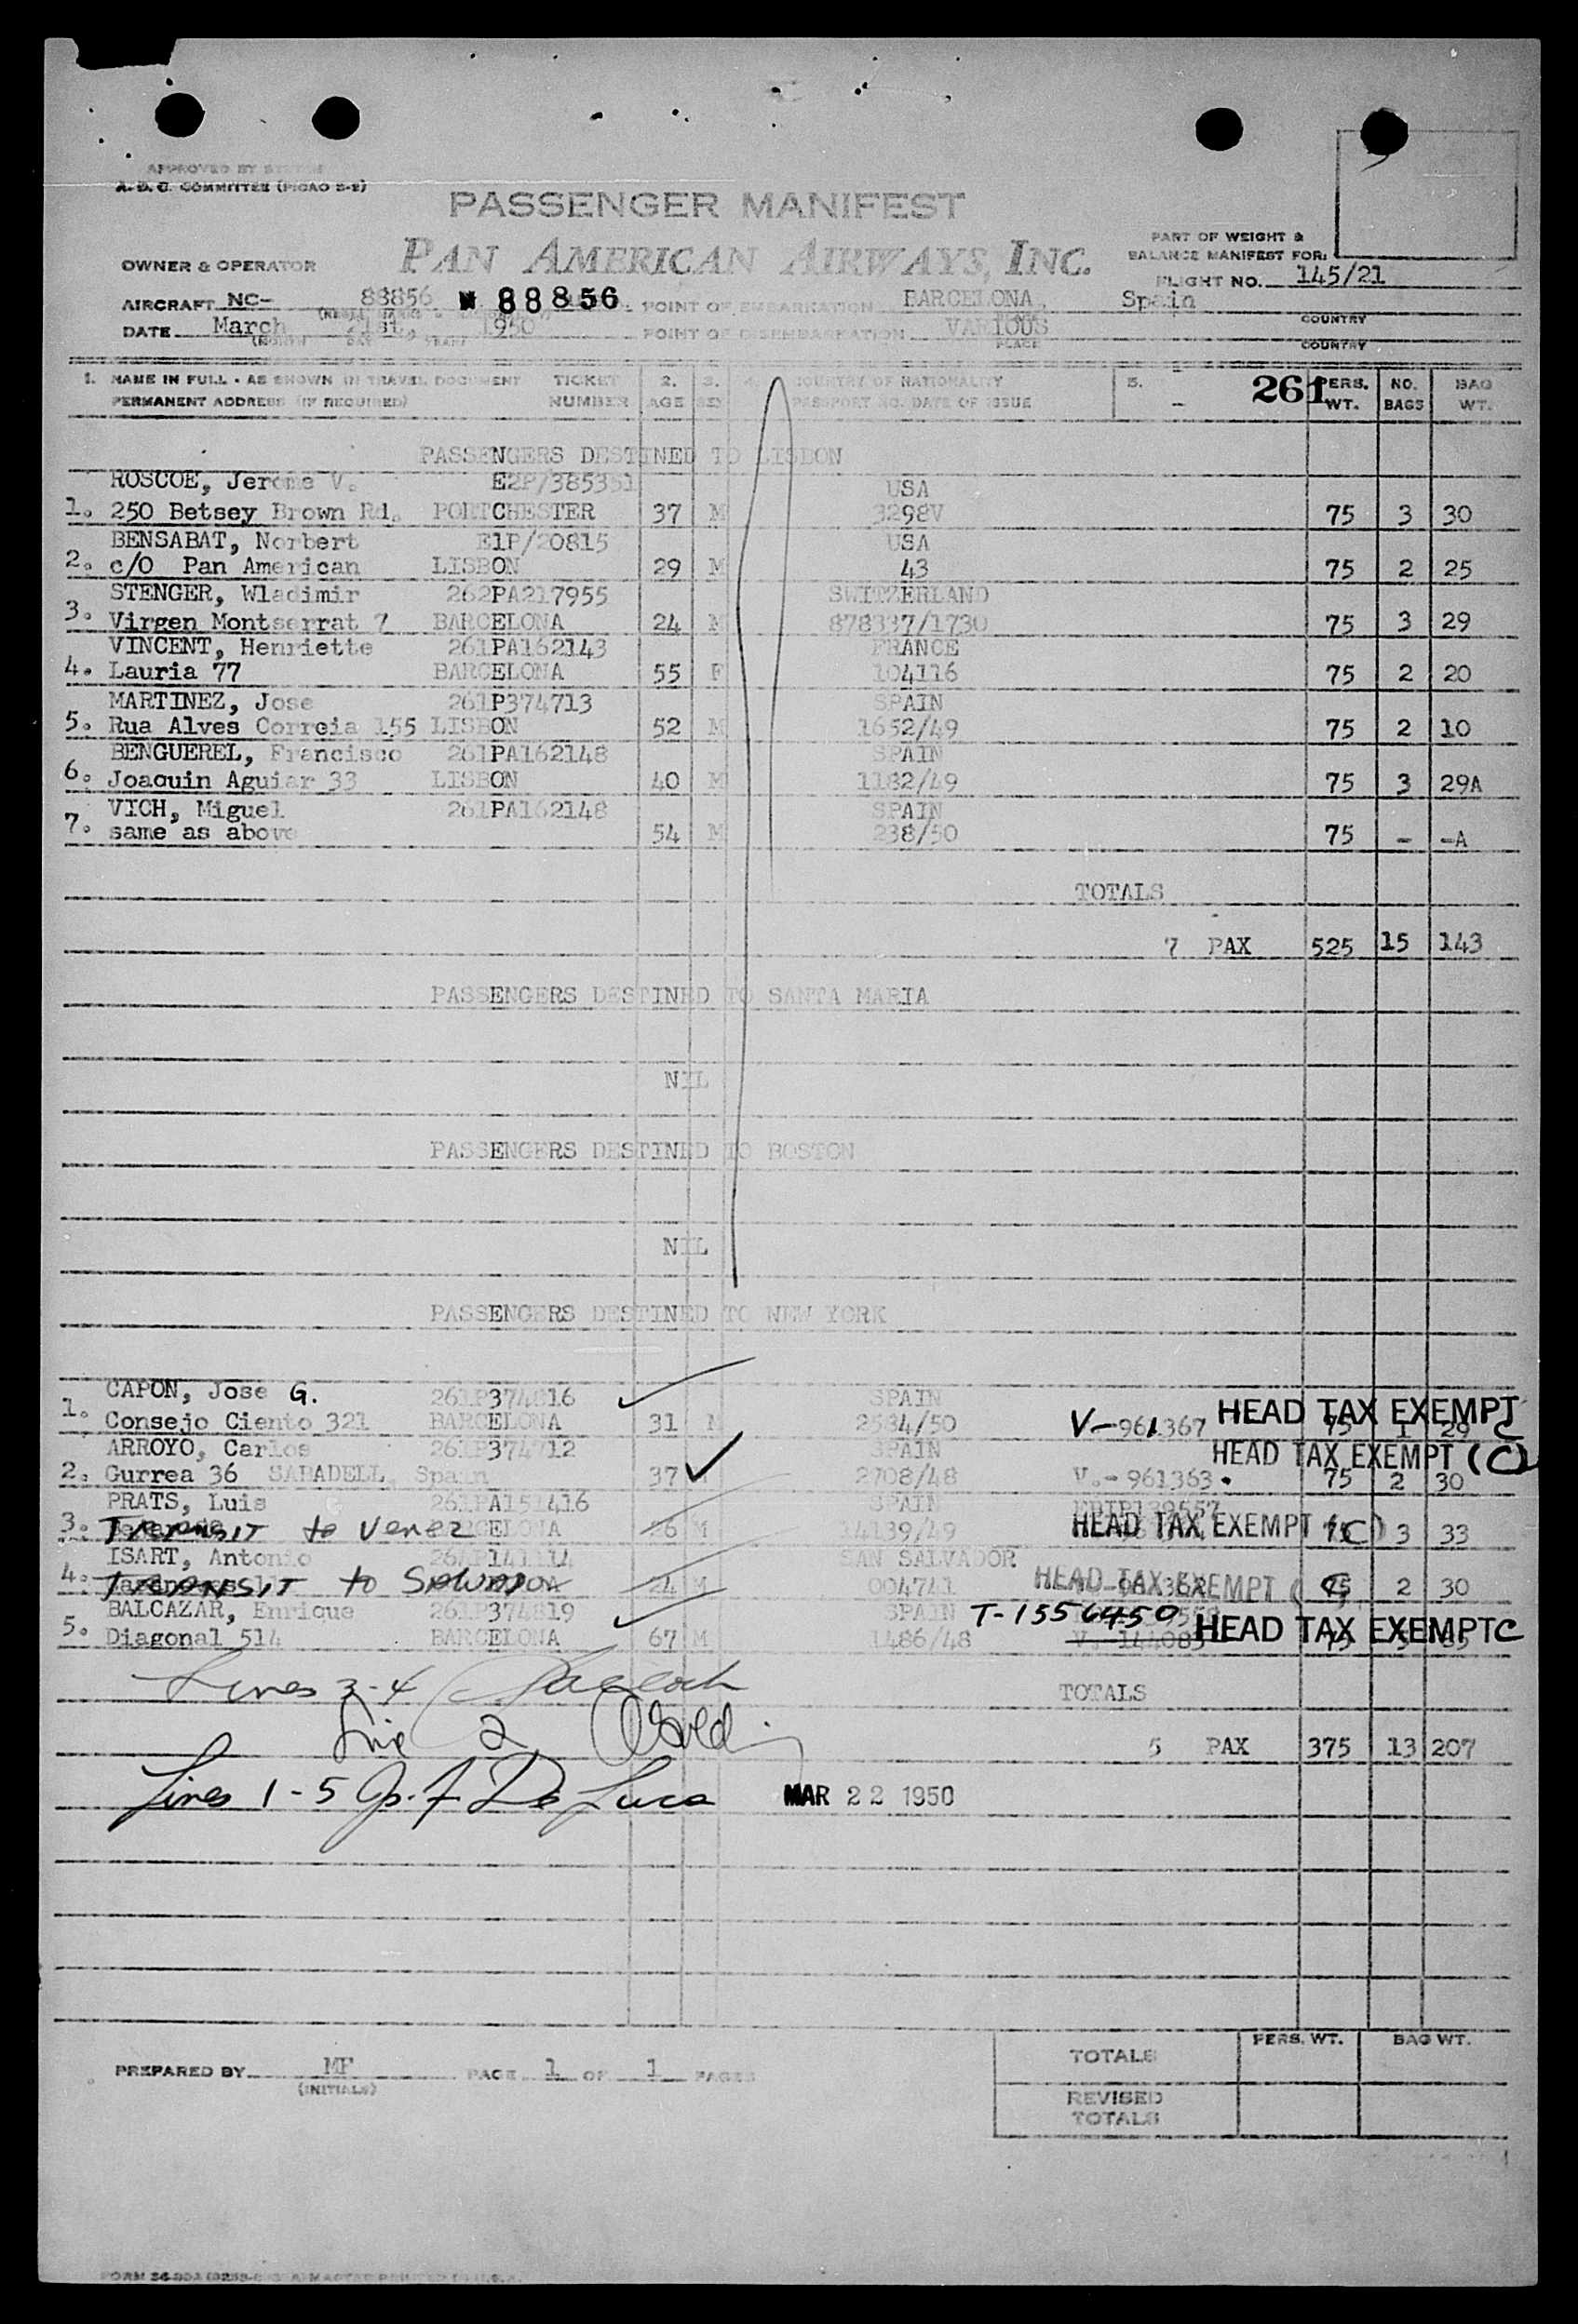 APPROVED BY
A. D. C. COMMITTEE (PICAO 2-2)
PASSENGER MANIFEST
PAN AMERICAN AIRWAYS, INC.
PART OF WEIGHT &
BALANCE MANIFEST FOR:
OWNER & OPERATOR
FLIGHT NO. 145/21
AIRCRAFT NC- 88856 N 88856 POINT OF EMBARKATION BARCELONA, Spain
COUNTRY
DATE March 21st, 1950 POINT OF DISEMBARKATION VARIOUS
(MONTH DAY YEAR) PLACE COUNTRY
1. NAME IN FULL - AS SHOWN IN TRAVEL DOCUMENT TICKET 2. 3. 4. COUNTRY OF NATIONALITY 5. 261 PERS. NO. BAG
PERMANENT ADDRESS (IF REQUIRED) NUMBER AGE SEX PASSPORT NO. DATE OF ISSUE - WT. BAGS WT.
PASSENGERS DESTINED TO LISBON
ROSCOE, Jerome V. E2P/385351 USA
1. 250 Betsey Brown Rd. PORTCHESTER 37 M 3298V 75 3 30
BENSABAT, Norbert E1P/20815 USA
2. c/O Pan American LISBON 29 M 43 75 2 25
STENGER, Wladimir 262PA217955 SWITZERLAND
3. Virgen Montserrat 7 BARCELONA 24 M 878337/1730 75 3 29
VINCENT, Henriette 261PA162143 FRANCE
4. Lauria 77 BARCELONA 55 F 104116 75 2 20
MARTINEZ, Jose 261P374713 SPAIN
5. Rua Alves Correia 155 LISBON 52 M 1652/49 75 2 10
BENGUEREL, Francisco 261PA162148 SPAIN
6. Joaquin Aguiar 33 LISBON 40 M 1182/49 75 3 29A
VICH, Miguel 261PA162148 SPAIN
7. same as above 54 M 238/50 75 - -A
TOTALS
7 PAX 525 15 143
PASSENGERS DESTINED TO SANTA MARIA
NIL
PASSENGERS DESTINED TO BOSTON
NIL
PASSENGERS DESTINED TO NEW YORK
CAPON, Jose G. 261P374816 SPAIN HEAD TAX EXEMPT C
1. Consejo Ciento 321 BARCELONA 31 M 2584/50 V-961367 75 1 29
ARROYO, Carlos 261P374712 SPAIN HEAD TAX EXEMPT (C)
2. Gurrea 36 SABADELL, Spain 37 M 2708/48 V.- 961363 75 2 30
PRATS, Luis 261PA151416 SPAIN
3. TRANSIT to Venez BARCELONA 26 M 14139/49 HEAD TAX EXEMPT (C) 75 3 33
ISART, Antonio SAN SALVADOR
4. TRANSIT to SALVADOR 24 M 004741 HEAD TAX EXEMPT (C) 75 2 30
BALCAZAR, Enrique 261P374819 SPAIN T-1556450
5. Diagonal 514 BARCELONA 67 M 1486/48 HEAD TAX EXEMPT C
Lines 3-4
TOTALS
Line 2
5 PAX 375 13 207
Lines 1-5 De Luca MAR 22 1950
PREPARED BY MF PAGE 1 OF 1 PAGES
(INITIALS)
PERS. WT. BAG WT.
TOTALS
REVISED
TOTALS